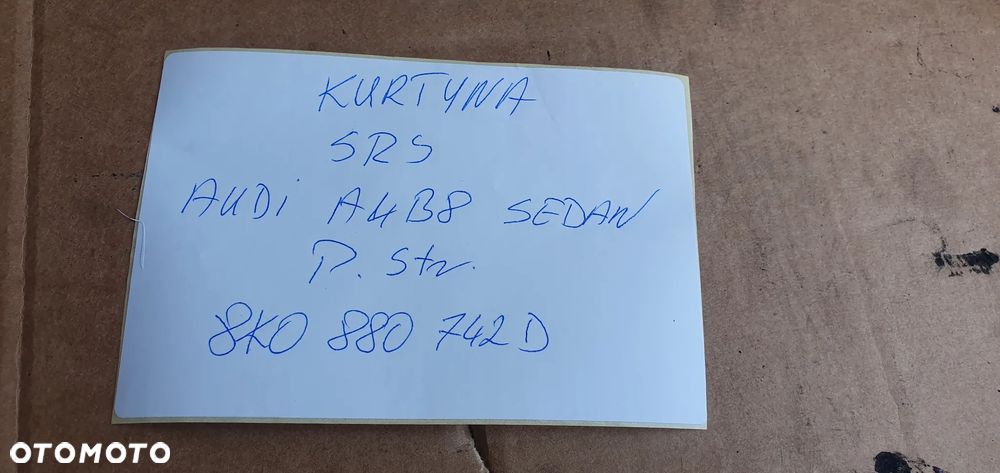 KURTYNA
SRS
AUDi A4B8 SEDAN
P. Str.
8K0 880 742D
OTOMOTO